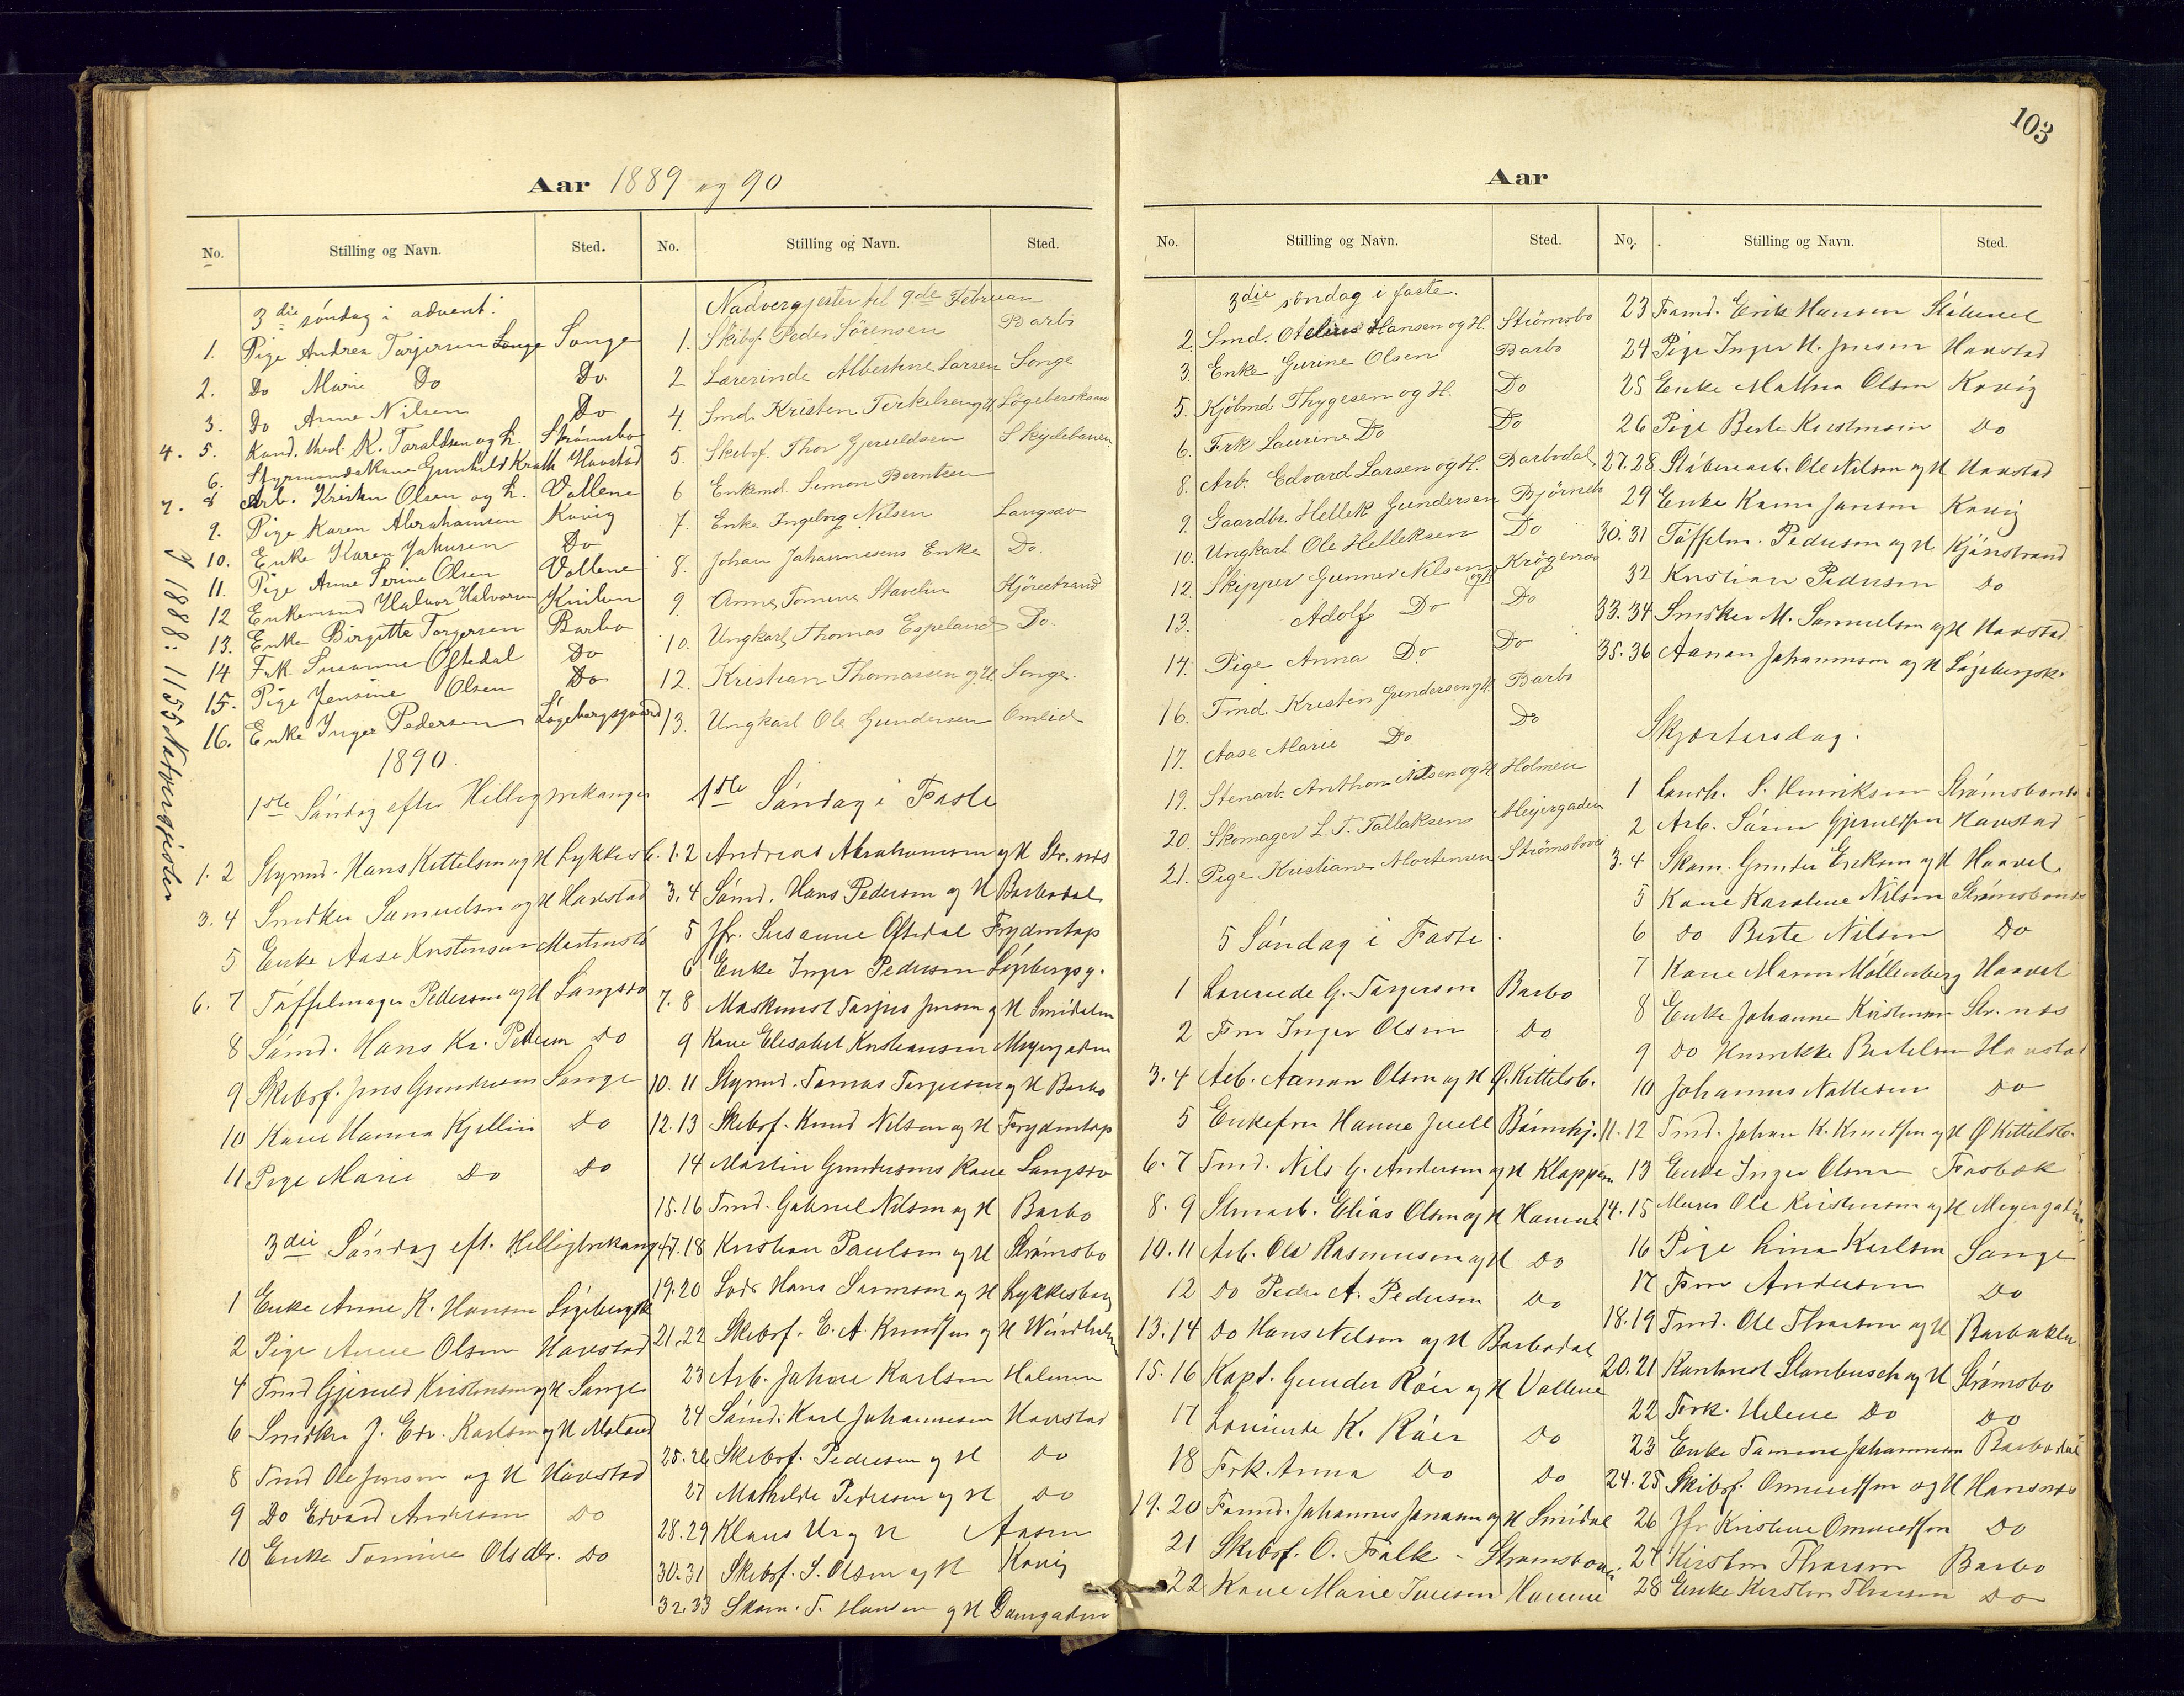 103
Aar 1889 og 90
No. Stilling og Navn. Sted.
3die söndag i advent.
1. Pige Andrea Torjersen Songe Songe
2. Do Marie Do Do
3. Do Anne Nilsen Do
4. 5. Kand. theol. K. Taraldsen og H. Strömsbo
6. Styrmandskone Gunhild Krath Havstad
7. 8 Arb. Kristen Olsen og H. Vollene
9. Pige Karen Abrahamsen Kuvig
10. Enke Karen Johnsen Do
11. Pige Anne Serine Olsen Vollene
12 Enkemand Halvor Halvorsen
13. Enke Birgitte Torgersen Barbo
14 Frk Susanne Oftedal Do
15. Pige Jensine Olsen Do
16. Enke Inger Pedersen Løgebergsgaard
I 1888: 1155 Natvergjester
1890.
1ste Söndag efter Helligtrekonger
1. 2 Styrmd. Hans Kittelsen og H Lykkesb.
3. 4 Smdkr Samuelsen og H Havstad
5 Enke Aase Kristensen
6. 7 Töffelmager Pedersen og H Langsæ
8 Sömd. Hans Kr. Pedersen Do
9 Skibsf. Jens Gundersen Songe
10 Kone Hanna Kjellin Do
11 Pige Marie Do Do
3die Söndag eft. Helligtrekonger
1 Enke Anne K. Hansen
2 Pige Anne Olsen Havstad
4 Tmd Gjeruld Kristensen og H Songe
6 Smdkr J. Edv. Karlsen og H
8 Tmd Ole Jensen og H Havstad
9 Do Edvard Andersen Do
10 Enke Tomine Olsdtr. Do
No. Stilling og Navn. Sted.
Nadvergjester til 9de Februar
1. Skibsf. Peder Sörensen Barbo
2 Lærerinde Albertine Larsen Songe
4. Smd. Kristen Terkelsen og H.
5. Skibsf. Thor Gjeruldsen Skydebanen
6 Enkemd. Simon Berntsen
7. Enke Ingeborg Nilsen Langsæv
8. Johan Johannesens Enke Do.
9 Anne Tomine Stavelin Kjönestrand
10. Ungkarl Thomas Espeland Do.
12. Kristian Thomassen og H. Songe.
13. Ungkarl Ole Gundersen Omlid
1ste Söndag i Faste
1. 2 Andreas Abrahamsen og H Str. næs
3. 4 Sömd. Hans Pedersen og H Barbodal
5 Jfr. Susanne Oftedal Frydentop
6 Enke Inger Pedersen Løgebergsg.
7. 8 Maskinist Torjus Jensen og H Smidalen
9 Kone Elisabet Kristiansen Meyergaden
10. 11 Styrmd. Tomas Torgersen og H Barbo
12. 13 Skibsf. Knud Nilsen og H Frydentop
14 Martin Gundersens Kone Langsæ
15. 16 Tmd. Gabriel Nilsen og H Barbo
17. 18 Kristian Paulsen og H Strömsbo
19. 20 Lods Hans Sörensen og H Lykkesborg
21. 22 Skibsf. E. A. Knudssen og H
23 Arb. Johan Karlsen Holmen
24 Sömd. Karl Johannesen Havstad
25. 26 Skibsf. Pedersen og H Do
27 Mathilde Pedersen og H Do
28. 29 Klaus Ur og H Aasen
30. 31 Skibsf. S. Olsen og H Kuvig
32. 33 Skom. T. Hansen og H Damgaden
Aar
No. Stilling og Navn. Sted.
3die söndag i faste.
2. Smd. Otelius Hansen og H. Strömsbo
3. Enke Gurine Olsen Barbo
5. Kjöbmd. Thygesen og H. Do
6. Frk Laurine Do Do
8. Arb. Edvard Larsen og H. Barbodal
9. Gaardbr. Hellek Gundersen
10. Ungkarl Ole Helleksen Do
12. Skipper Gunner Nilsen og H. Krögenæs
13. Adolf Do Do
14. Pige Anna Do Do
16. Tmd. Kristen Gundersen og H. Barbo
17. Aase Marie Do Do
19. Stenarb. Anthon Nilsen og H Holmen
20. Skomager L. T. Tallaksens Meyergaden
21. Pige Kristiane Mortensen Strömsbovei
5 Söndag i Faste.
1 Lærerinde G. Torgersen Barbo
2 Fru Inger Olsen Do
3. 4 Arb. Aanon Olsen og H Ø. Kittelsb.
5 Enkefru Hanne Juell
6. 7 Tmd. Nils G. Andersen og H Kloppen
8. 9 Stenarb. Elias Olsen og H
10. 11 Arb. Ole Rasmussen og H Do
12 Do Peder A. Pedersen Do
13. 14 Do Hans Nilsen og H Barbodal
15. 16 Kapt. Gunder Röer og H Vollene
17 Lærerinde K. Röer Do
18 Frk. Anna Do Do
19. 20 Tömmd. Johannes Jonassen og H Smidal
21 Skibsf. O. Falk - Strömsbovei
22 Kone Marie Iversen
No. Stilling og Navn. Sted.
23 Tömd. Erik Hansen
24 Pige Inger H. Jensen Havstad
25 Enke Mathea Olsen Kuvig
26 Pige Berte Kristensen Do
27. 28 Ole Nilsen og H Havstad
29 Enke Karen Jensen Kuvig
30. 31 Töffelm. Pedersen og H Kjönstrand
32 Kristian Pedersen Do
33. 34 Smdkr M. Samuelsen og H Havstad
35. 36 Aanon Johannesen og H
Skjærtorsdag.
1 Landh. S. Henriksen
2 Arb. Sören Gjeruldsen Havstad
3. 4 Skom. Gunder Eriksen og H
5 Kone Karoline Nilsen
6 Do Berte Nilsen Do
7 Kone Maren Möllenberg
8 Enke Johanne Kristensen Str. næs
9 Do Henrikke Bertelsen Havstad
10 Johannes Do
11. 12 Tmd. Johan K. Knudssen og H Ø Kittelsb.
13 Enke Inger Olsen Fosbæk
14. 15 Murer Ole Kristensen og H Meyergaden
16 Pige Lina Karlsen Songe
17 Fru Andersen Do
18. 19 Tmd. Ole Thorsen og H
20. 21 Kontorist Stanbusch og H Strömsbo
22 Frk. Helene Do Do
23 Enke Tomine Johannesen Barbodal
24. 25 Skibsf. Omundssen og H
26 Jfr Kristine Omundssen Do
27 Kirsten Thorsen Barbo
28 Enke Kirsten Thorsen Do